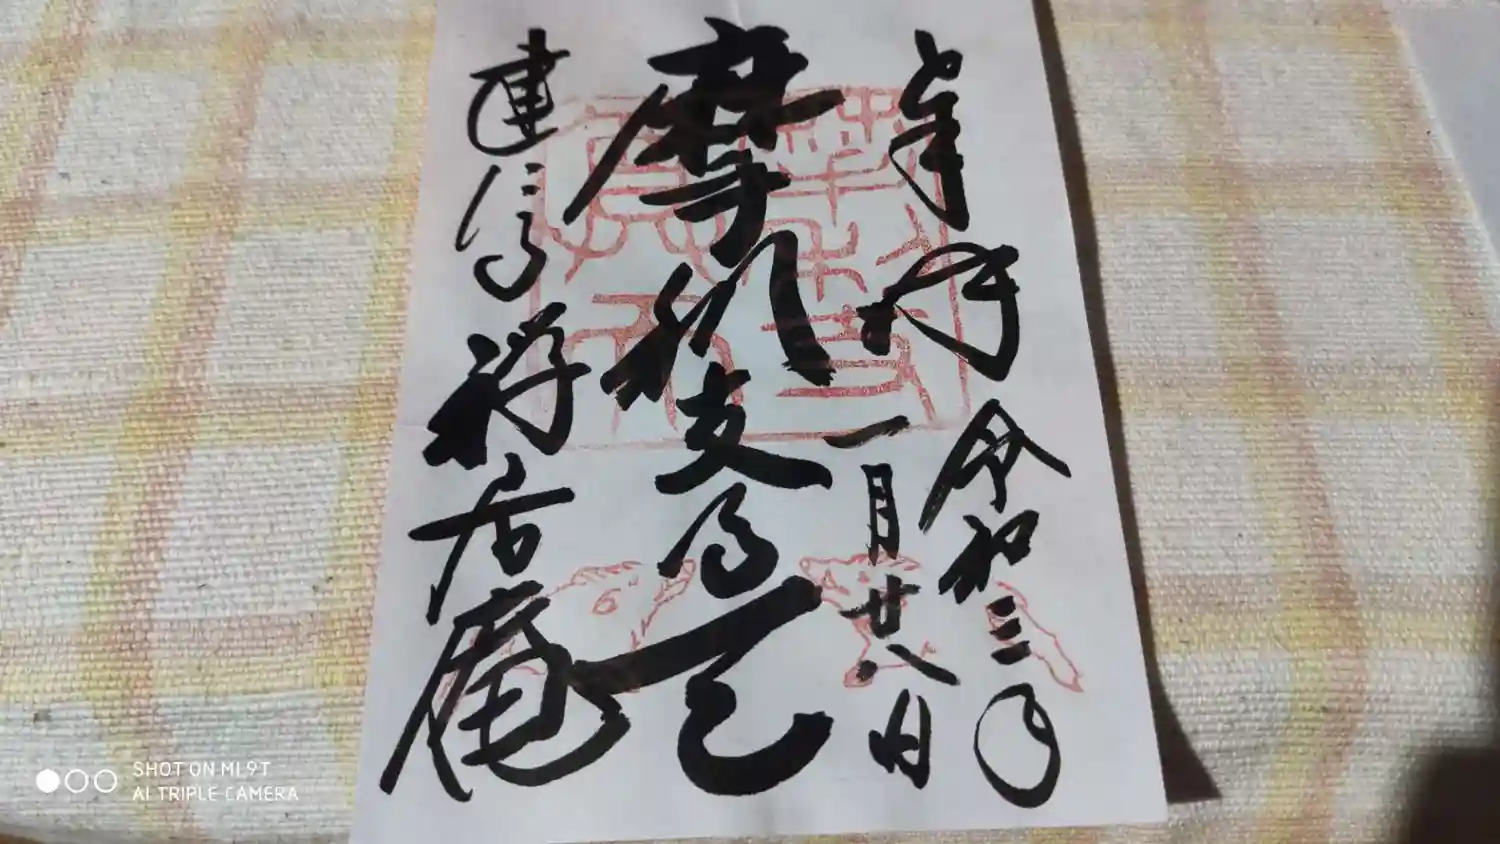 奉拝
令和三年
一月廿八日
摩利支尊天
建仁寺 禅居庵
SHOT ON MI 9T
AI TRIPLE CAMERA